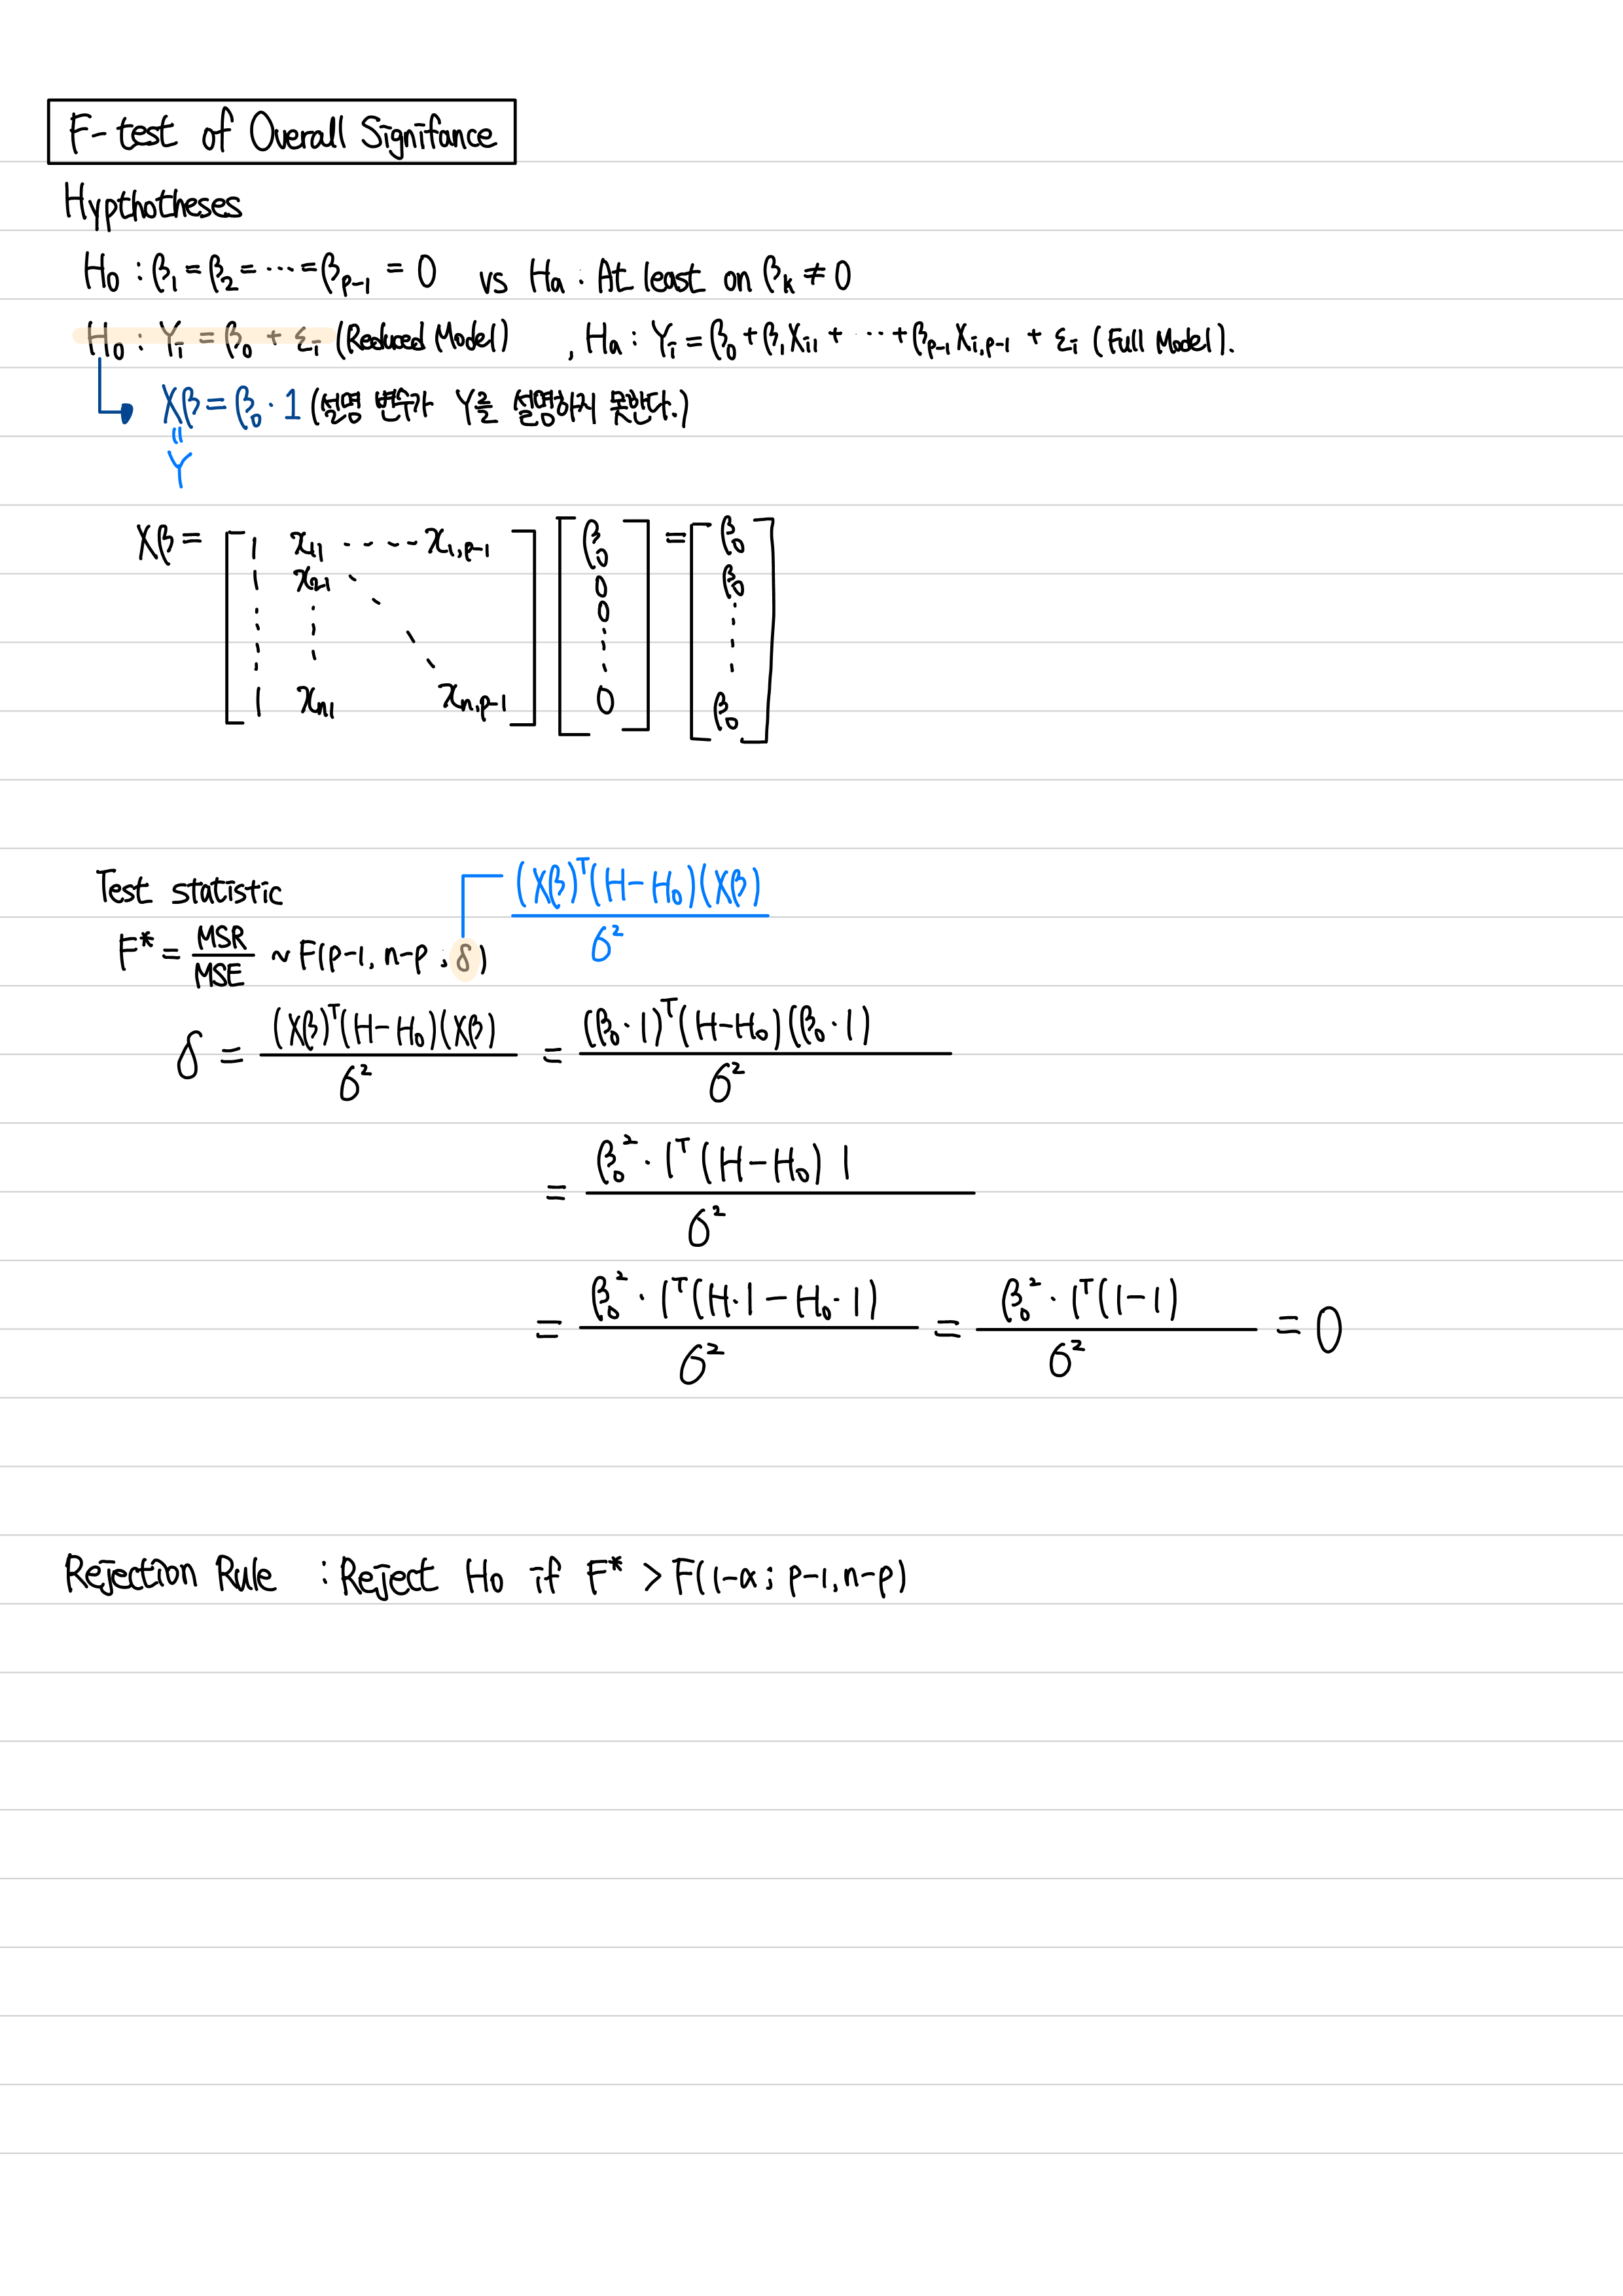 F-test of Overall Signifance
Hypthotheses
H₀ : β₁ = β₂ = ⋯ = β_{p-1} = 0 vs Hₐ : At least on βₖ ≠ 0
H₀ : Yᵢ = β₀ + εᵢ (Reduced Model) , Hₐ : Yᵢ = β₀ + β₁X_{i1} + ⋯ + β_{p-1}X_{i,p-1} + εᵢ (Full Model).
Xβ = β₀ · 1 (설명 변수가 Y를 설명하지 못한다.)
=
Y
Xβ = [1 x₁₁ ⋯ x_{1,p-1}] [β₀] = [β₀]
1 x₂₁ 0 β₀
⋮ ⋮ ⋱ 0 ⋮
1 x_{n1} x_{n,p-1} 0 β₀
(Xβ)ᵀ(H-H₀)(Xβ) / σ²
Test statistic
F* = MSR / MSE ~ F(p-1, n-p ; δ)
δ = (Xβ)ᵀ(H-H₀)(Xβ) / σ² = (β₀·1)ᵀ(H-H₀)(β₀·1) / σ²
= β₀² · 1ᵀ(H-H₀) 1 / σ²
= β₀² · 1ᵀ(H·1 - H₀·1) / σ² = β₀² · 1ᵀ(1-1) / σ² = 0
Rejection Rule : Reject H₀ if F* > F(1-α ; p-1, n-p)